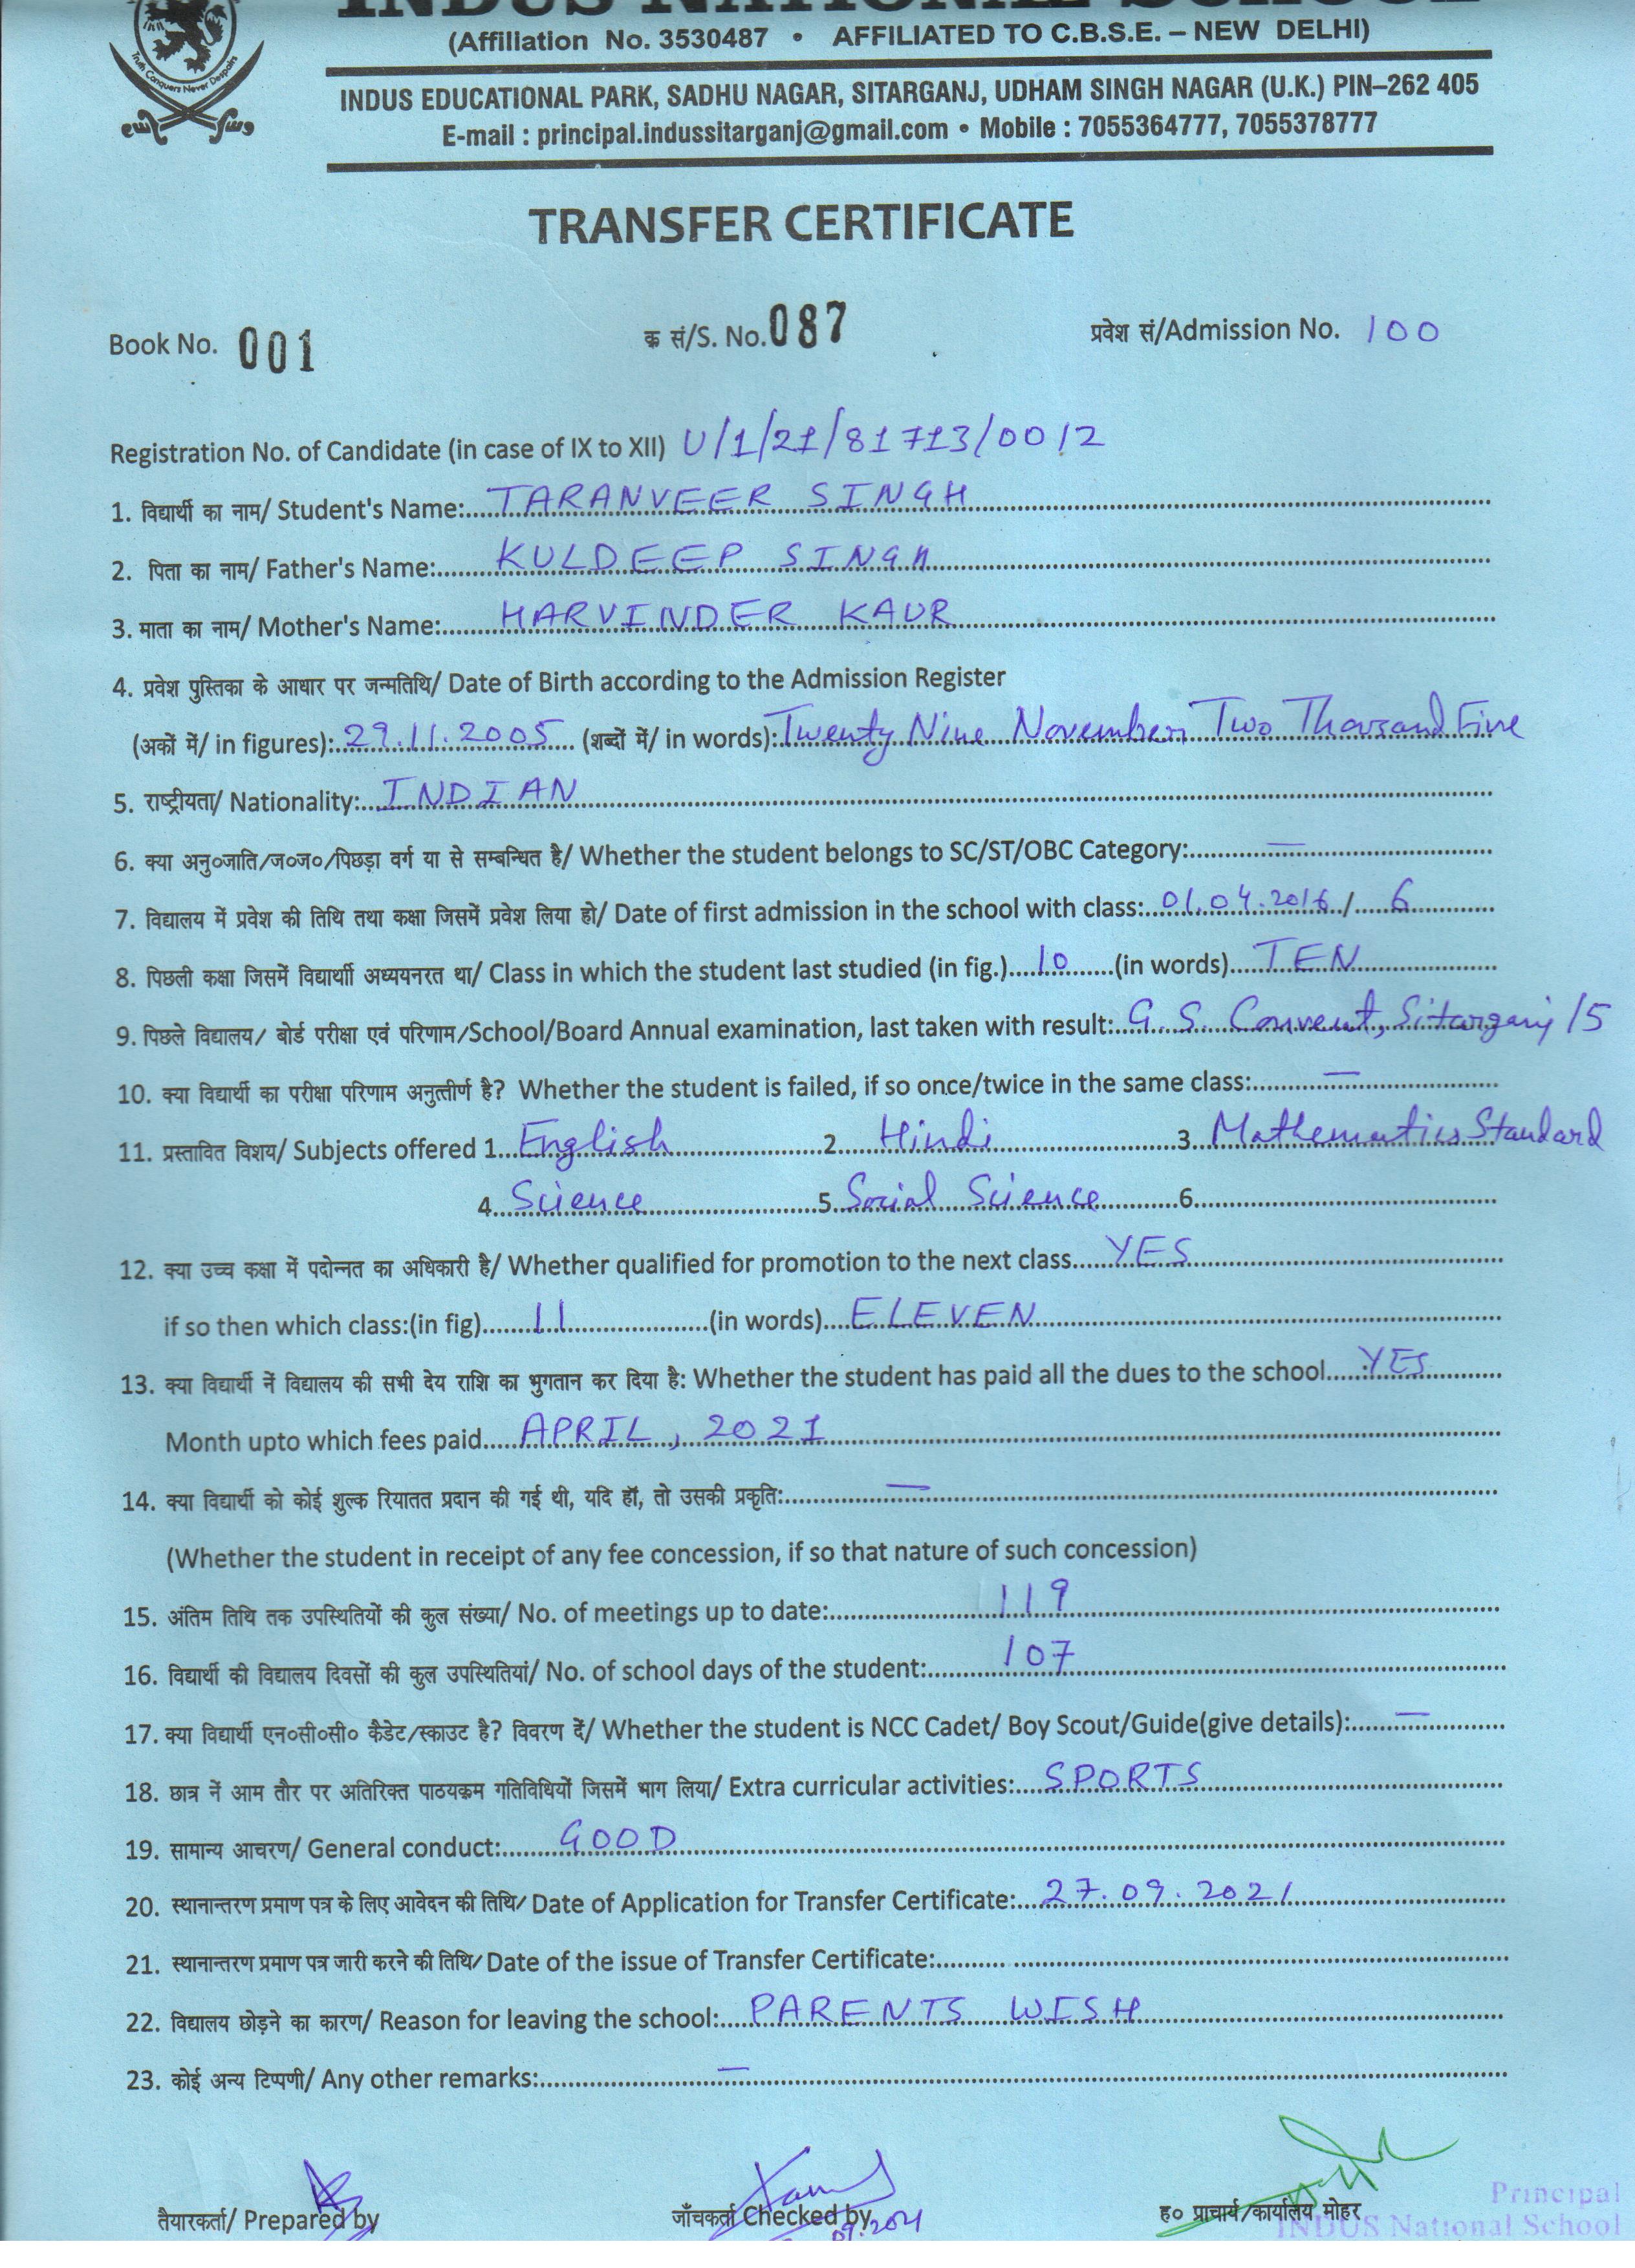 INDUS NATIONAL SCHOOL
(Affiliation No. 3530487 • AFFILIATED TO C.B.S.E. – NEW DELHI)
Truth Conquers Never Despairs
INDUS EDUCATIONAL PARK, SADHU NAGAR, SITARGANJ, UDHAM SINGH NAGAR (U.K.) PIN–262 405
E-mail : principal.indussitarganj@gmail.com • Mobile : 7055364777, 7055378777
TRANSFER CERTIFICATE
Book No. 001 क्र सं/S. No. 087 प्रवेश सं/Admission No. 100
Registration No. of Candidate (in case of IX to XII) U/1/21/81713/0012
1. विद्यार्थी का नाम/ Student's Name: TARANVEER SINGH
2. पिता का नाम/ Father's Name: KULDEEP SINGH
3. माता का नाम/ Mother's Name: HARVINDER KAUR
4. प्रवेश पुस्तिका के आधार पर जन्मतिथि/ Date of Birth according to the Admission Register
(अकों में/ in figures): 29.11.2005 (शब्दों में/ in words): Twenty Nine November Two Thousand Five
5. राष्ट्रीयता/ Nationality: INDIAN
6. क्या अनु०जाति/ज०ज०/पिछड़ा वर्ग या से सम्बन्धित है/ Whether the student belongs to SC/ST/OBC Category: —
7. विद्यालय में प्रवेश की तिथि तथा कक्षा जिसमें प्रवेश लिया हो/ Date of first admission in the school with class: 01.04.2016 / 6
8. पिछली कक्षा जिसमें विद्यार्थी अध्ययनरत था/ Class in which the student last studied (in fig.) 10 (in words) TEN
9. पिछले विद्यालय/ बोर्ड परीक्षा एवं परिणाम/School/Board Annual examination, last taken with result: G. S. Convent, Sitarganj /5
10. क्या विद्यार्थी का परीक्षा परिणाम अनुत्तीर्ण है? Whether the student is failed, if so once/twice in the same class: —
11. प्रस्तावित विशय/ Subjects offered 1. English 2. Hindi 3. Mathematics Standard
4. Science 5. Social Science 6.
12. क्या उच्च कक्षा में पदोन्नत का अधिकारी है/ Whether qualified for promotion to the next class YES
if so then which class:(in fig) 11 (in words) ELEVEN
13. क्या विद्यार्थी नें विद्यालय की सभी देय राशि का भुगतान कर दिया है: Whether the student has paid all the dues to the school YES
Month upto which fees paid APRIL, 2021
14. क्या विद्यार्थी को कोई शुल्क रियातत प्रदान की गई थी, यदि हॉ, तो उसकी प्रकृति: —
(Whether the student in receipt of any fee concession, if so that nature of such concession)
15. अंतिम तिथि तक उपस्थितियों की कुल संख्या/ No. of meetings up to date: 119
16. विद्यार्थी की विद्यालय दिवसों की कुल उपस्थितियां/ No. of school days of the student: 107
17. क्या विद्यार्थी एन०सी०सी० कैडेट/स्काउट है? विवरण दें/ Whether the student is NCC Cadet/ Boy Scout/Guide(give details): —
18. छात्र नें आम तौर पर अतिरिक्त पाठयक्रम गतिविधियों जिसमें भाग लिया/ Extra curricular activities: SPORTS
19. सामान्य आचरण/ General conduct: GOOD
20. स्थानान्तरण प्रमाण पत्र के लिए आवेदन की तिथि/ Date of Application for Transfer Certificate: 27.09.2021
21. स्थानान्तरण प्रमाण पत्र जारी करने की तिथि/ Date of the issue of Transfer Certificate:
22. विद्यालय छोड़ने का कारण/ Reason for leaving the school: PARENTS WISH
23. कोई अन्य टिप्पणी/ Any other remarks: —
तैयारकर्ता/ Prepared by जाँचकर्ता Checked by ह० प्राचार्य/कार्यालय मोहर
Principal
INDUS National School